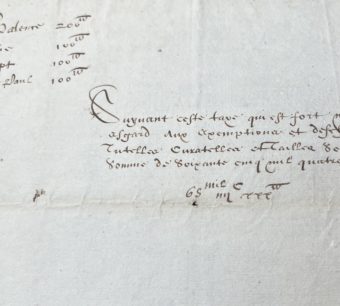 Valence 200ˡᵗ
100ˡᵗ
100ˡᵗ
Paul 100ˡᵗ
Suyuant ceste taxe qui est fort
esgard aux exemptions et
Tutelles Curatelles et tailles
Somme de Soixante cinq mil quatre
65 mil iiij C xxx ˡᵗ